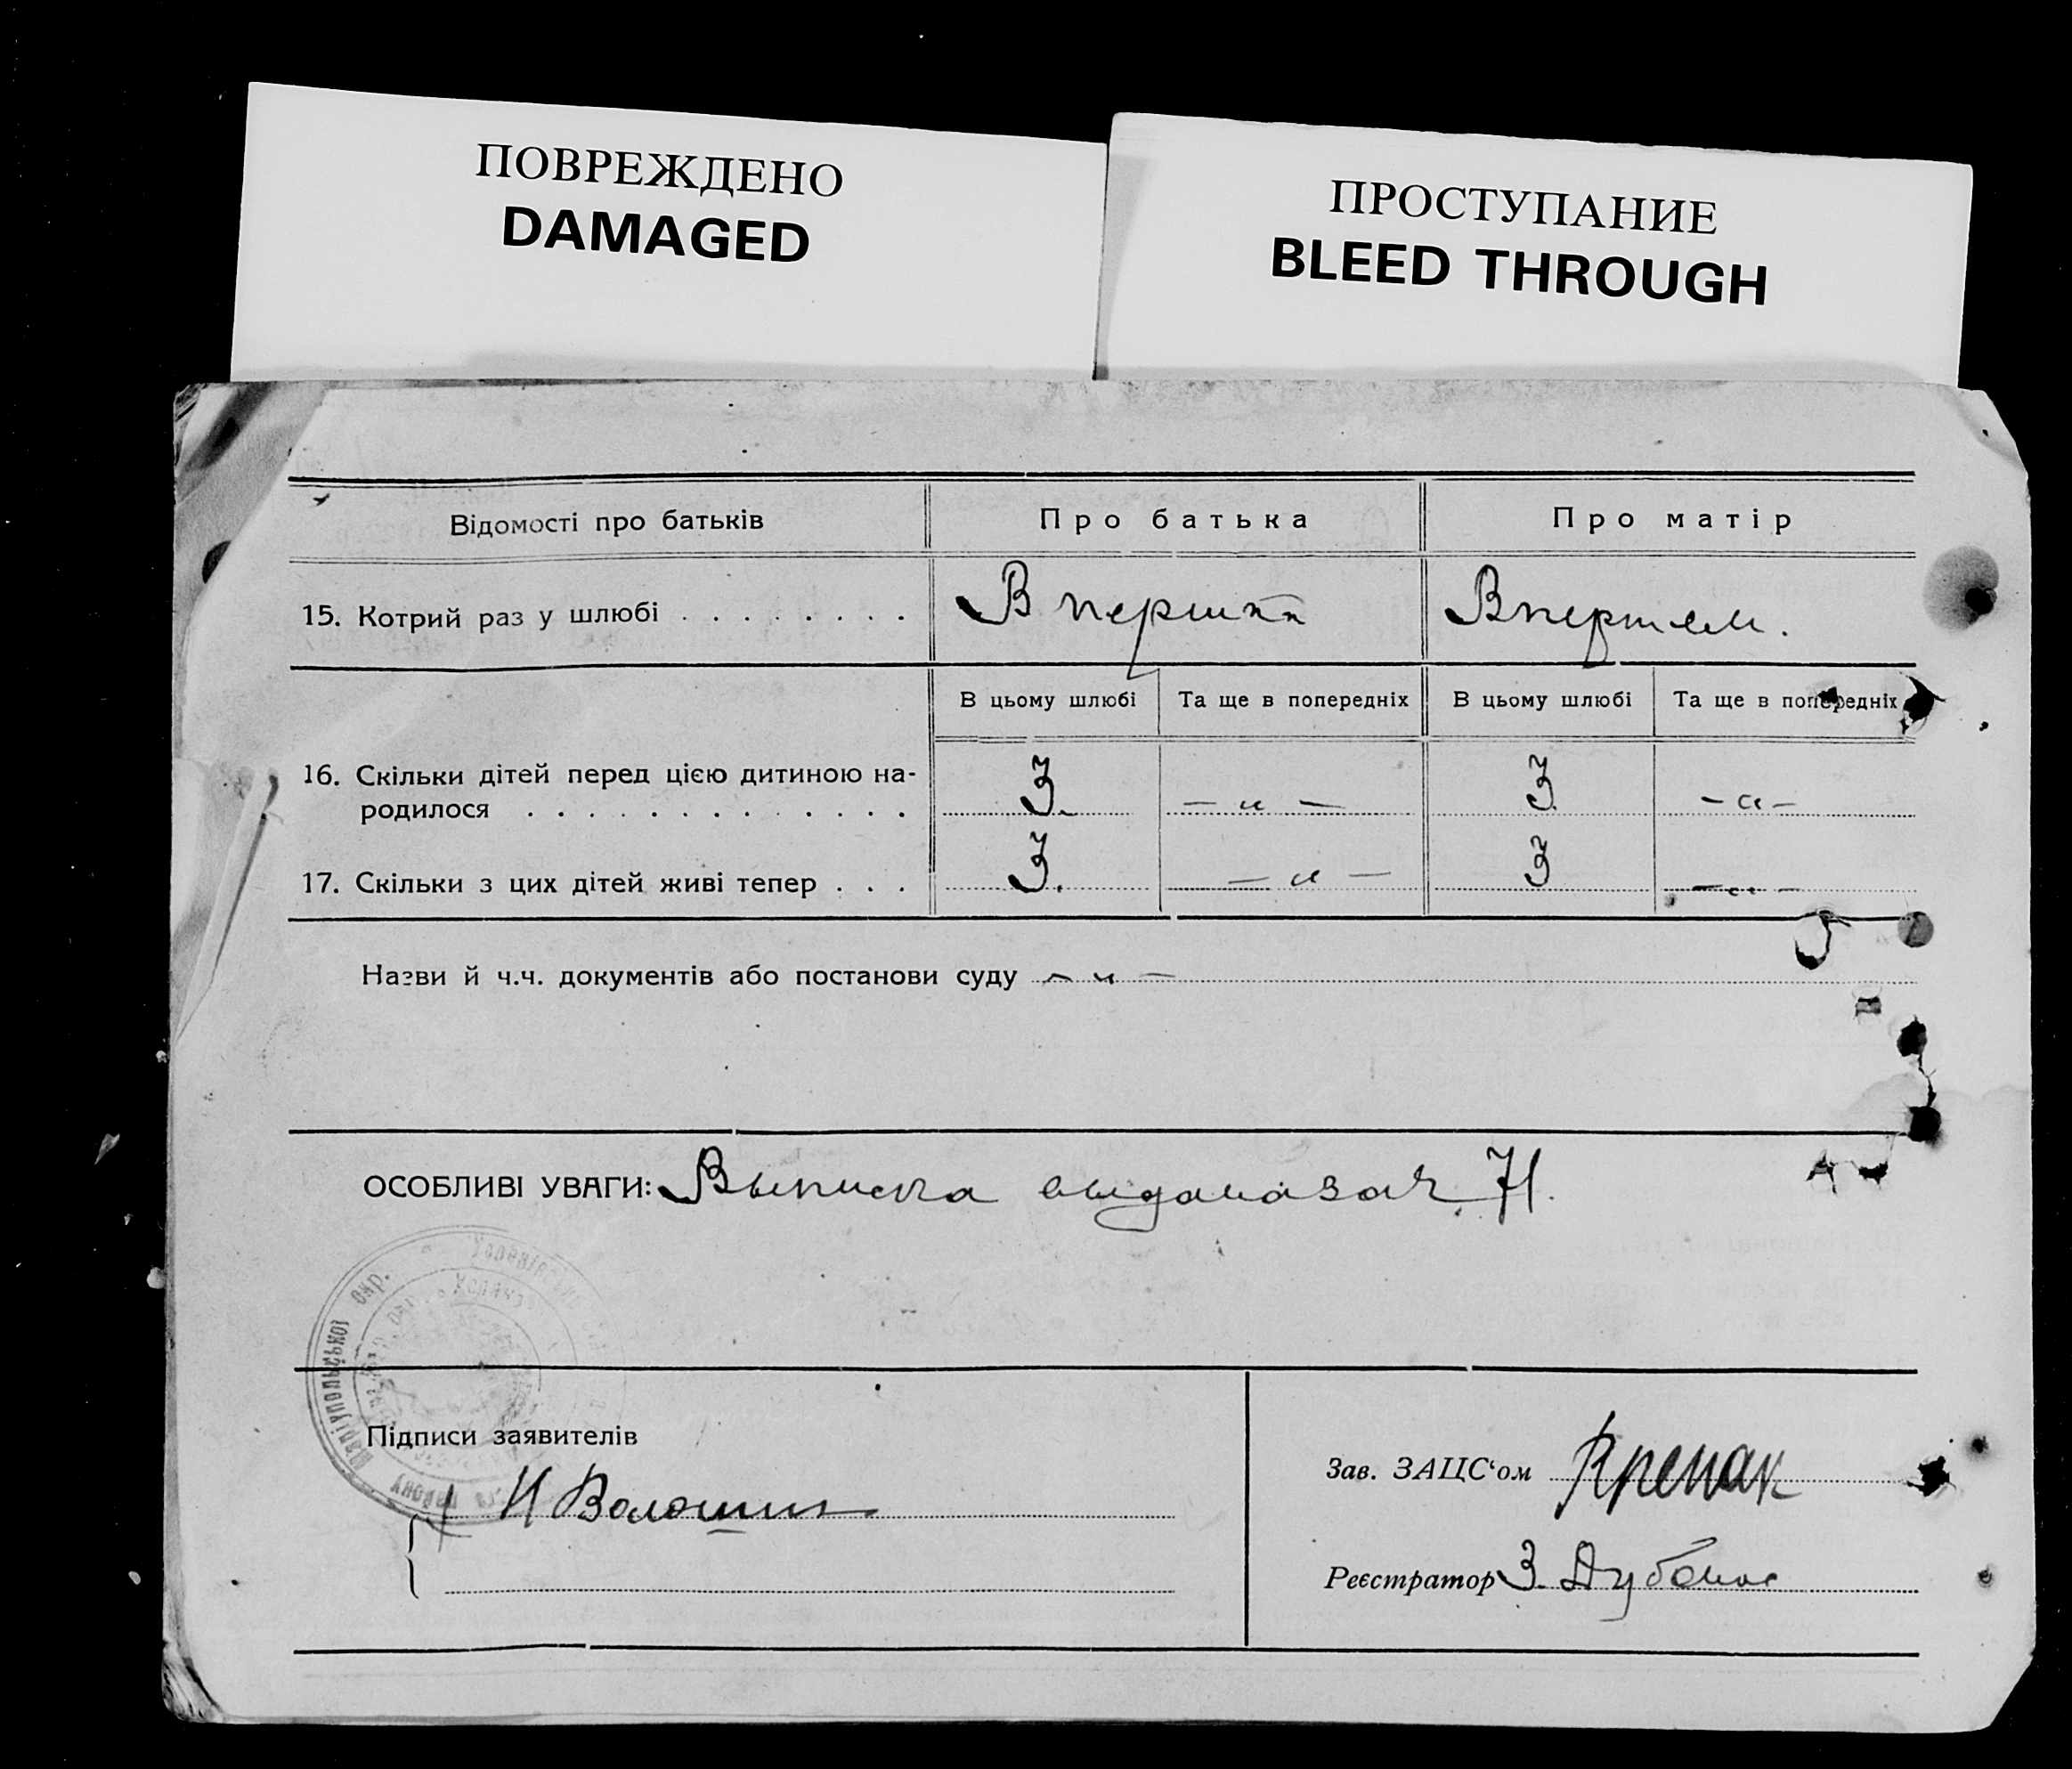 ПОВРЕЖДЕНО
DAMAGED
ПРОСТУПАНИЕ
BLEED THROUGH
Відомості про батьків
Про батька
Про матір
15. Котрий раз у шлюбі . . . . . . . .
В цьому шлюбі
Та ще в попередніх
В цьому шлюбі
Та ще в попередніх
16. Скільки дітей перед цією дитиною на-
родилося . . . . . . . . . . . . .
3.
— „ —
3
— „ —
17. Скільки з цих дітей живі тепер . . .
3.
— „ —
3
— „ —
Назви й ч.ч. документів або постанови суду — „ —
ОСОБЛИВІ УВАГИ: Выписка
Маріупольської окр.
району
Підписи заявителів
И Волошин
Зав. ЗАЦС‘ом
Реєстратор З.